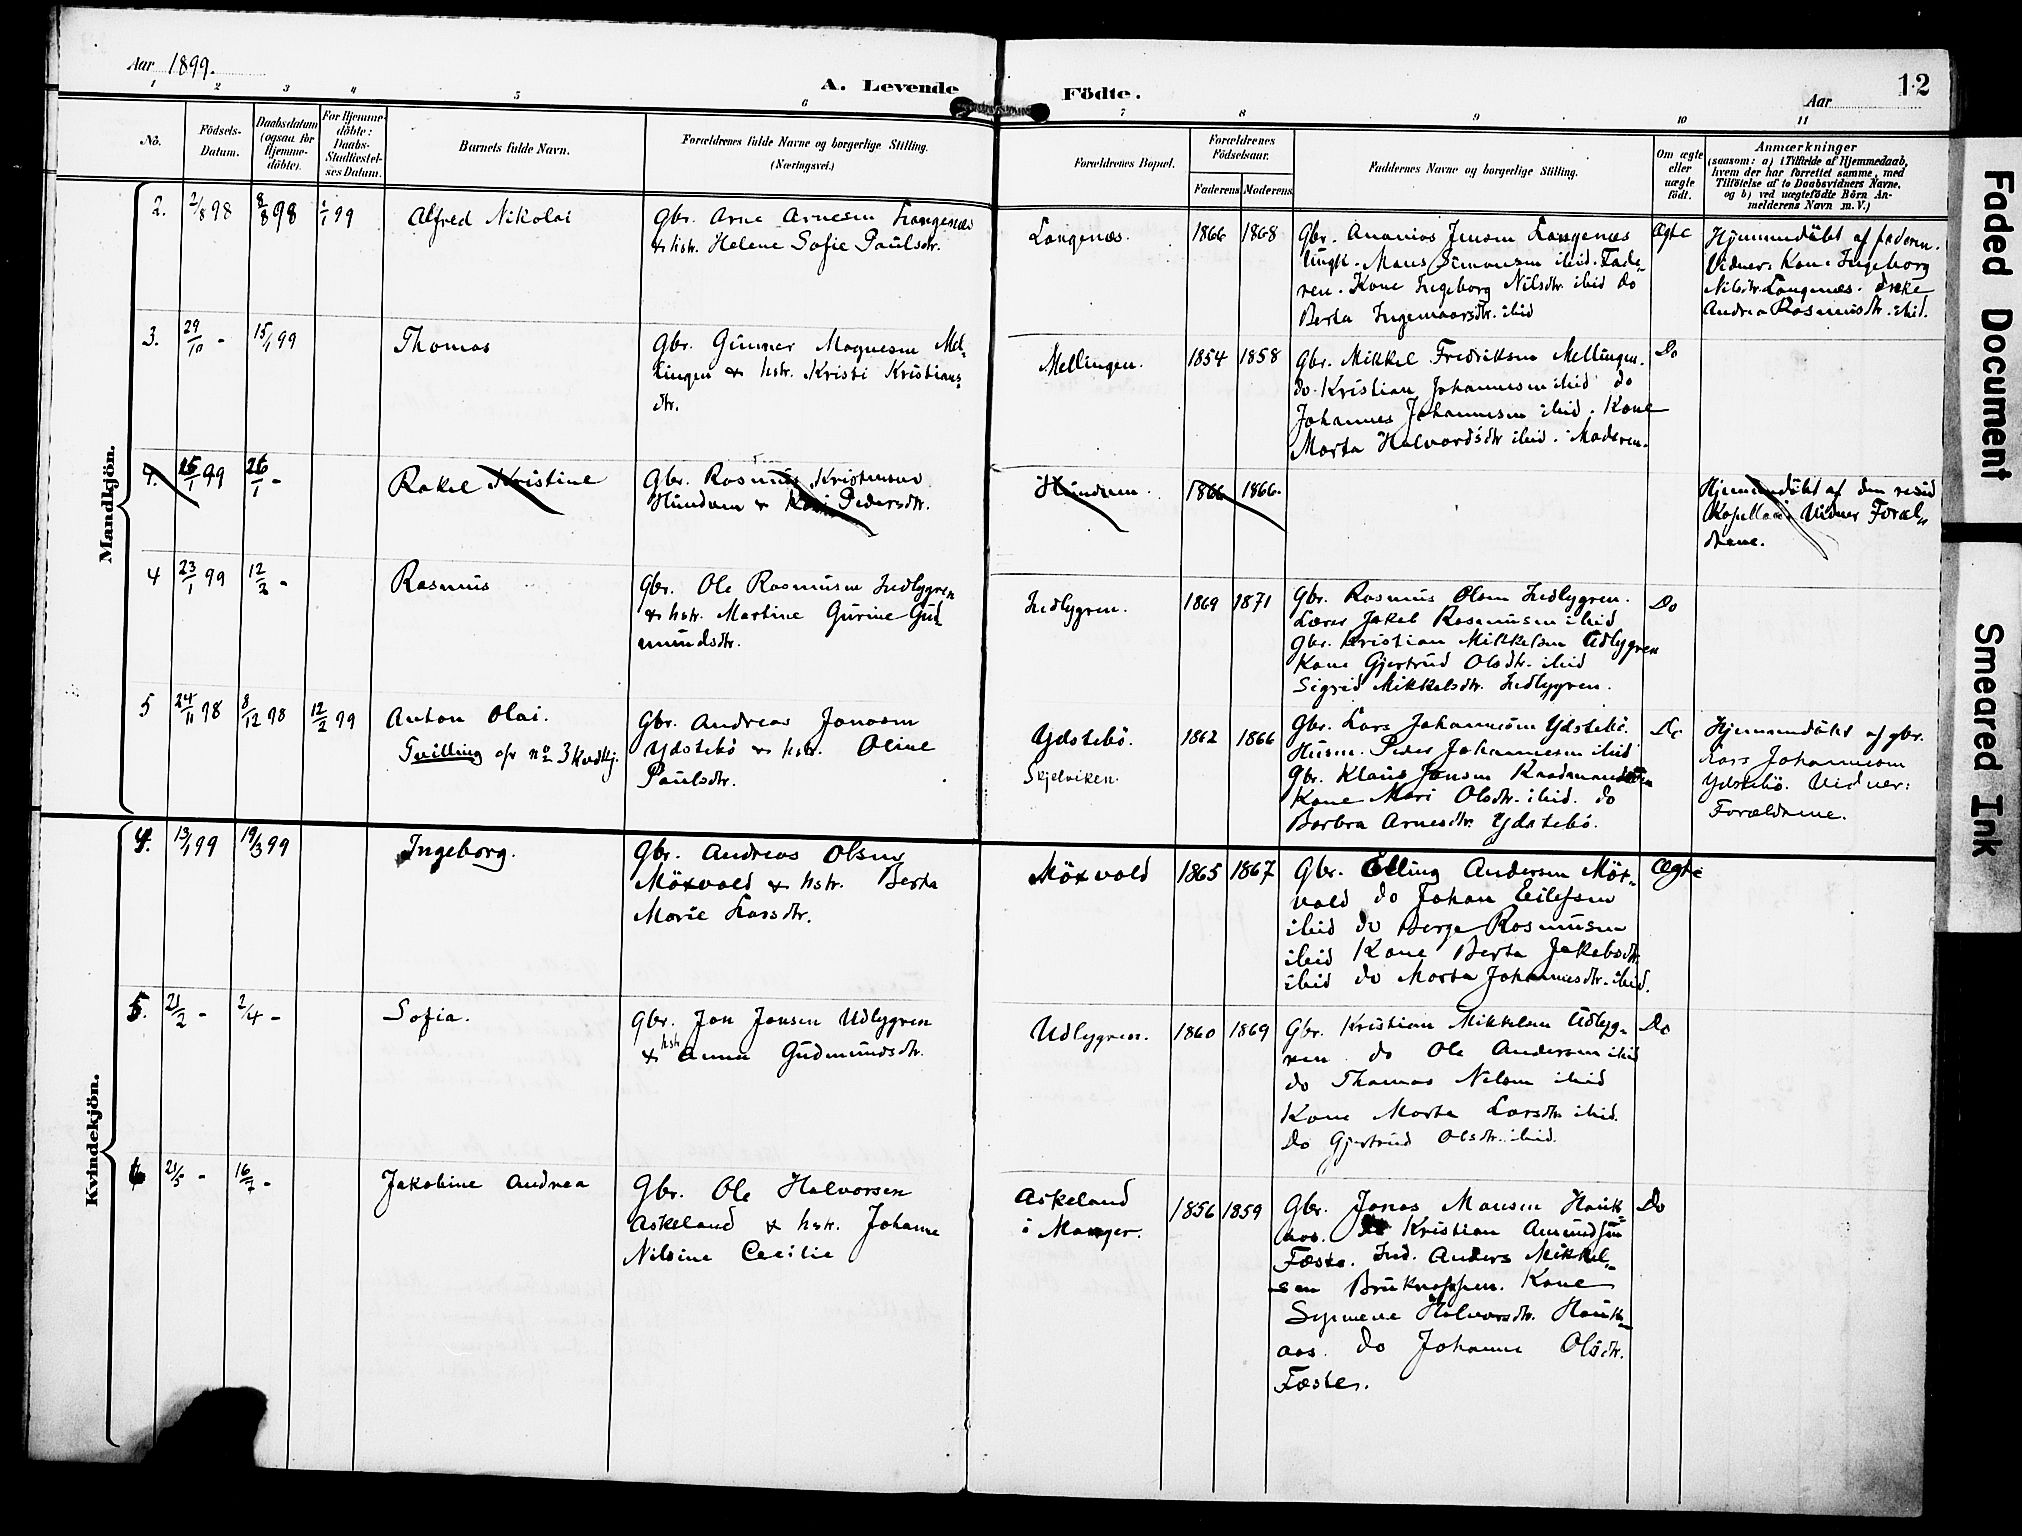 Aar 1899.
A. Levende
Födte.
12
Aar
1 2 3 4 5 6 7 8 9 10 11
No.
Födsels-
Datum.
Daabsdatum
(ogsaa for
Hjemme-
döbte).
For Hjemme-
döbte:
Daabs-
Stadfæstel-
ses Datum.
Barnets fulde Navn.
Forældrenes fulde Navne og borgerlige Stilling.
(Næringsvei.)
Forældrenes Bopæl.
Forældrenes
Födselsaar.
Faderens Moderens
Faddernes Navne og borgerlige Stilling.
Om ægte
eller
uægte
födt.
Anmærkninger
(saasom: a) i Tilfælde af Hjemmedaab,
hvem der har forrettet samme, med
Tilföielse af to Daabsvidners Navne,
og b) ved uægtefödte Börn An-
melderens Navn m.V.)
Mandkjön.
2. 2/8 98 8/8 98 1/1 99 Alfred Nikolai
Gbr. Arne Arnesen Langenæs
& hstr. Helene Sofie Paulsdtr.
Langenæs. 1866 1868
Gbr. Ananias Jensen Langenæs
Ungk. Mons Simonsen ibid. Fade-
ren. Kone Ingeborg Nilsdtr. ibid do
Berta Ingemaarsdtr. ibid
Ægte
Hjemmedöbt af faderen.
Vidner: Kone Ingeborg
Nilsdtr. Langenæs. Enke
Andrea Rasmusdtr. ibid.
3. 29/10 - 15/1 99 Thomas
Gbr. Gunner Magnesen Mel-
lingen & hstr. Kristi Kristians-
dtr.
Mellingen. 1854 1858
Gbr. Mikkel Fredriksen Mellingen.
do. Kristian Johannesen ibid do
Johannes Johannesen ibid. Kone
Marta Halvardsdtr ibid. Moderen.
Do
4. 15/1 99 26/1 - Rakel Kristine
Gbr. Rasmus Kristensen
Hundven & Kari Pedersdtr.
Hundven. 1866 1866.
Hjemmedöbt af den resid
Kapellan. Vidner Foræl-
drene.
4 23/1 99 12/2 - Rasmus
Gbr. Ole Rasmusen Indlygren
& hstr. Martine Gurine Gud
mundsdtr.
Indlygren. 1869 1871
Gbr. Rasmus Olsen Indlygren.
Lærer Jakob Rasmusen ibid
Gbr. Kristian Mikkelsen Udlygren
Kone Gjertrud Olsdtr. ibid
Sigrid Mikkelsdtr. Indlygren.
Do
5 24/11 98 8/12 98 12/2 99 Anton Olai.
Tvilling cfr no 3 kvdkj.
Gbr. Andreas Jonasen
Ydstebö & hstr. Oline
Paulsdtr.
Ydstebö.
Skjelviken.
1862 1866
Gbr. Lars Johannesen Ydstebö.
Husm. Peder Johannesen ibid
Gbr. Klaus Jensen
Kone Mari Olsdtr. ibid. do
Barbra Arnesdtr. Ydstebö.
Do
Hjemmedöbt af gbr.
Lars Johannesen
Ydstebö. Vidner:
Forældrene.
Kvindekjön.
4. 13/1 99 19/3 99 Ingeborg.
Gbr. Andreas Olsen
Möxvold & hstr. Berta
Marie Larsdtr.
Möxvold 1865 1867
Gbr. Elling Andersen Möx-
vold do Johan Eilefsen
ibid do Berge Rasmusen
ibid Kone Berta Jakobsdtr.
ibid do Marta Johannesdtr. ibid.
Ægte
5. 21/2 - 2/4 - Sofia.
Gbr. Jon Jonsen Udlygren
& hstr Anna Gudmundsdtr.
Udlygren. 1860 1869
Gbr. Kristian Mikkelsen Udlyg-
ren do Ole Andersen ibid
do Thomas Nilsen ibid
Kone Marta Larsdtr ibid.
Do Gjertrud Olsdtr. ibid.
Do
6 21/5 - 16/7 - Jakobine Andrea
Gbr. Ole Halvorsen
Askeland & hstr. Johanne
Nilsine Cecilie
Askeland
i Manger.
1856 1859
Gbr. Jonas Monsen Hauk-
aas. Kristian Amundsen
Fæste. Ind. Anders Mikkel-
sen Bruknappen. Kone
Symene Halvorsdtr. Hauk-
aas. do Johanne Olsdtr.
Fæste.
Do
Faded Document
Smeared Ink